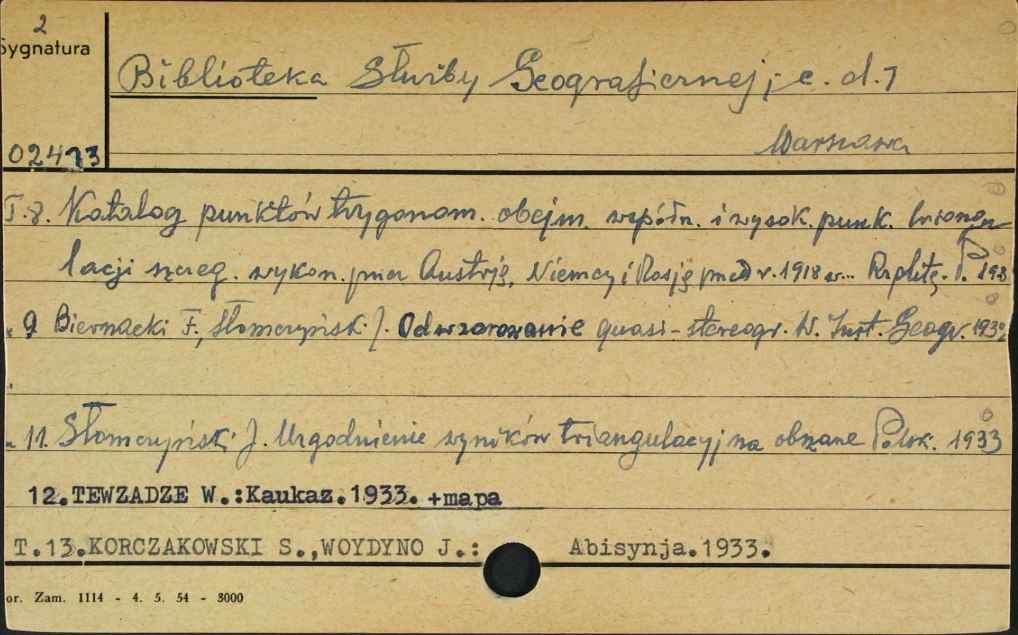 2
Sygnatura
Biblioteka Służby Geograficznej; c. d. 1
02413
Warszawa
T. 8. Katalog punktów trygonom. obejm. współrz. i wysok. punk. triangu
lacji szereg. wykon. przez Austrję, Niemcy i Rosję przed r. 1918 w... Rzplitej. P. 193
" 9 Biernacki F., Słomczyński J. Odwzorowanie quasi-stereogr. W. Inst. Geogr. 1932
" 11. Słomczyński J. Uzgodnienie wyników triangulacyj na obszarze Polsk. 1933
12.TEWZADZE W.:Kaukaz.1933. +mapa
T.13.KORCZAKOWSKI S.,WOYDYNO J.: Abisynja.1933.
or. Zam. 1114 - 4. 5. 54 - 3000